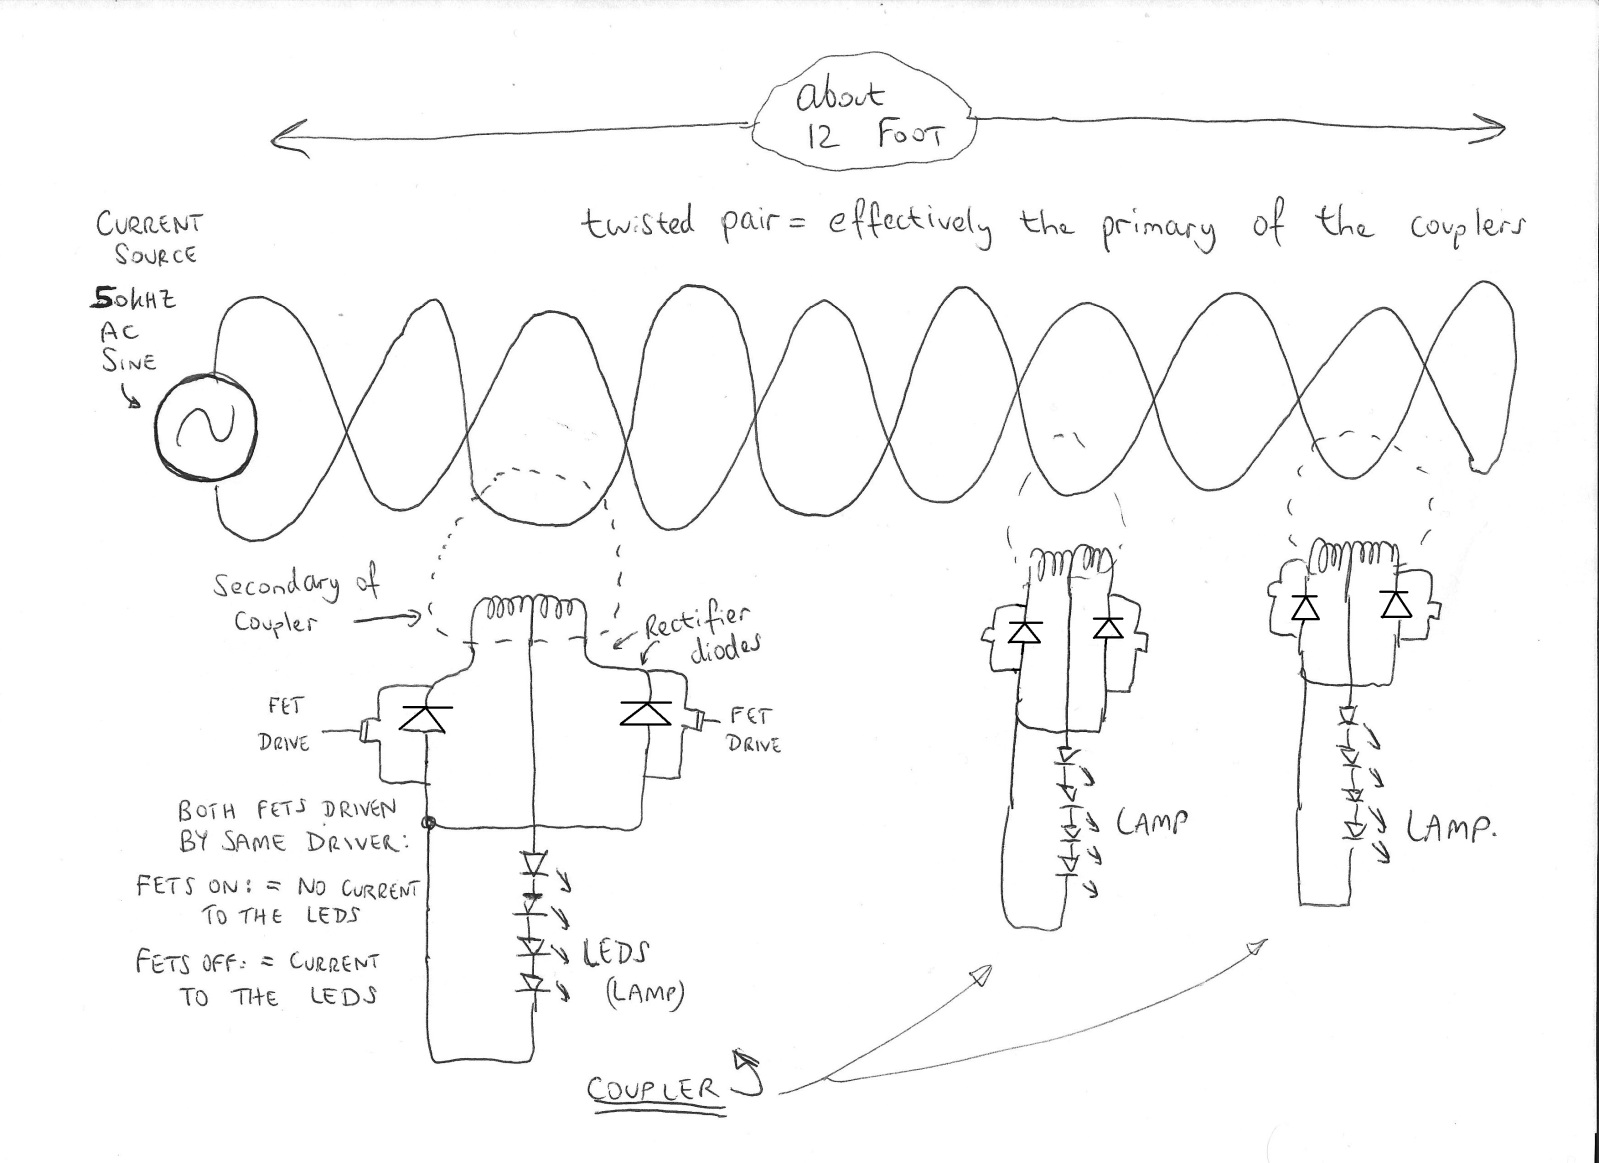 about
12 FOOT
twisted pair = effectively the primary of the couplers
CURRENT
SOURCE
50kHZ
AC
SINE
Secondary of
Coupler
Rectifier
diodes
FET
DRIVE
FET
DRIVE
BOTH FETS DRIVEN
BY SAME DRIVER:
FETS ON: = NO CURRENT
TO THE LEDS
FETS OFF: = CURRENT
TO THE LEDS
LEDS
(LAMP)
LAMP
LAMP.
COUPLER